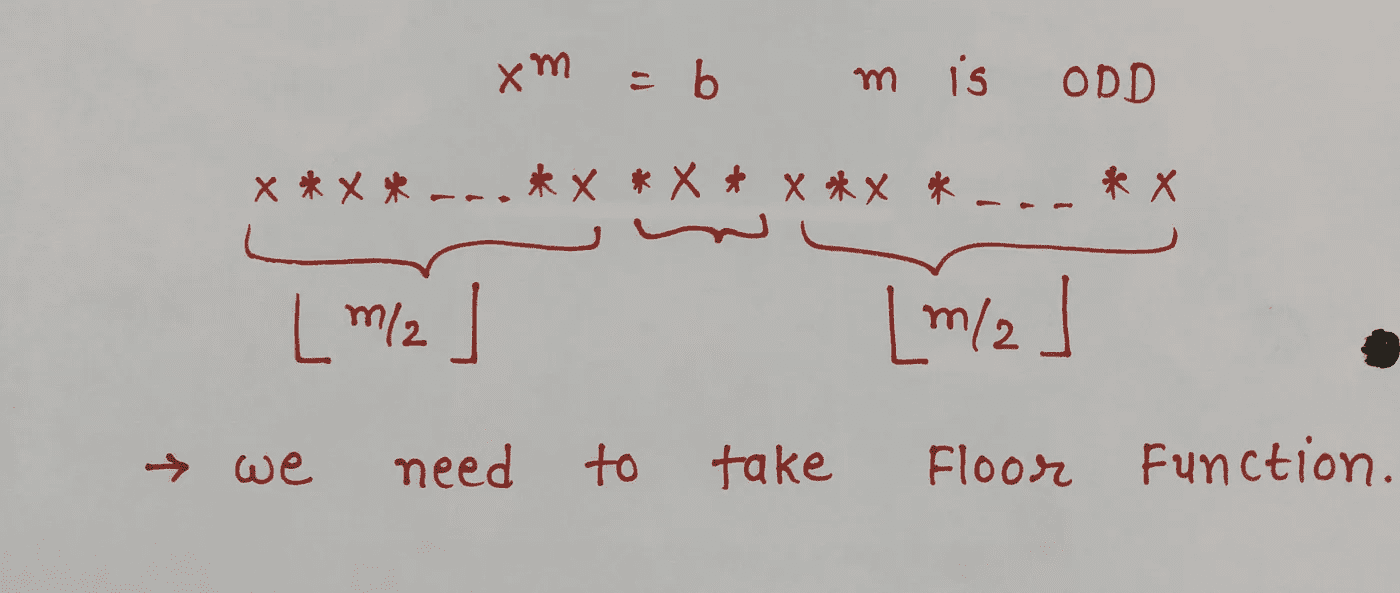 x^m = b m is ODD
x * x * _ _ _ . * x * x * x * x * _ _ _ * x
⌊ m/2 ⌋ ⌊ m/2 ⌋
→ we need to take Floor Function.